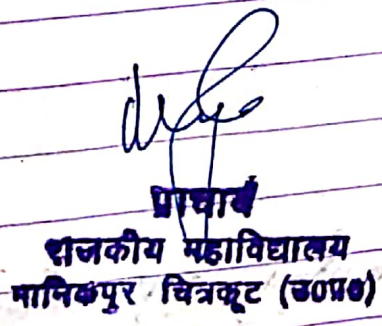 प्राचार्य
राजकीय महाविद्यालय
मानिकपुर चित्रकूट (उ०प्र०)